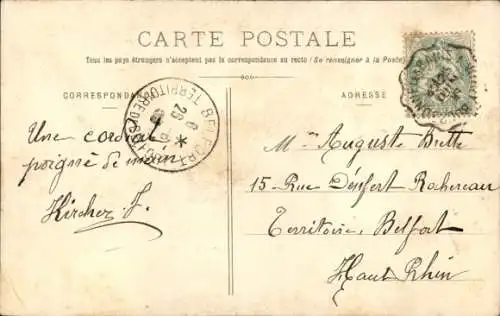 CARTE POSTALE
Tous les pays étrangers n'acceptent pas la correspondance au recto (Se renseigner à la Poste)
CORRESPONDANCE
ADRESSE
BELFORT
TERRITOIRE DE
6
26
Une cordial
poigné de main
Kircher F.
Mr Auguste
15 - Rue Denfert Rochereau
Territoire, Belfort
Haut Rhin